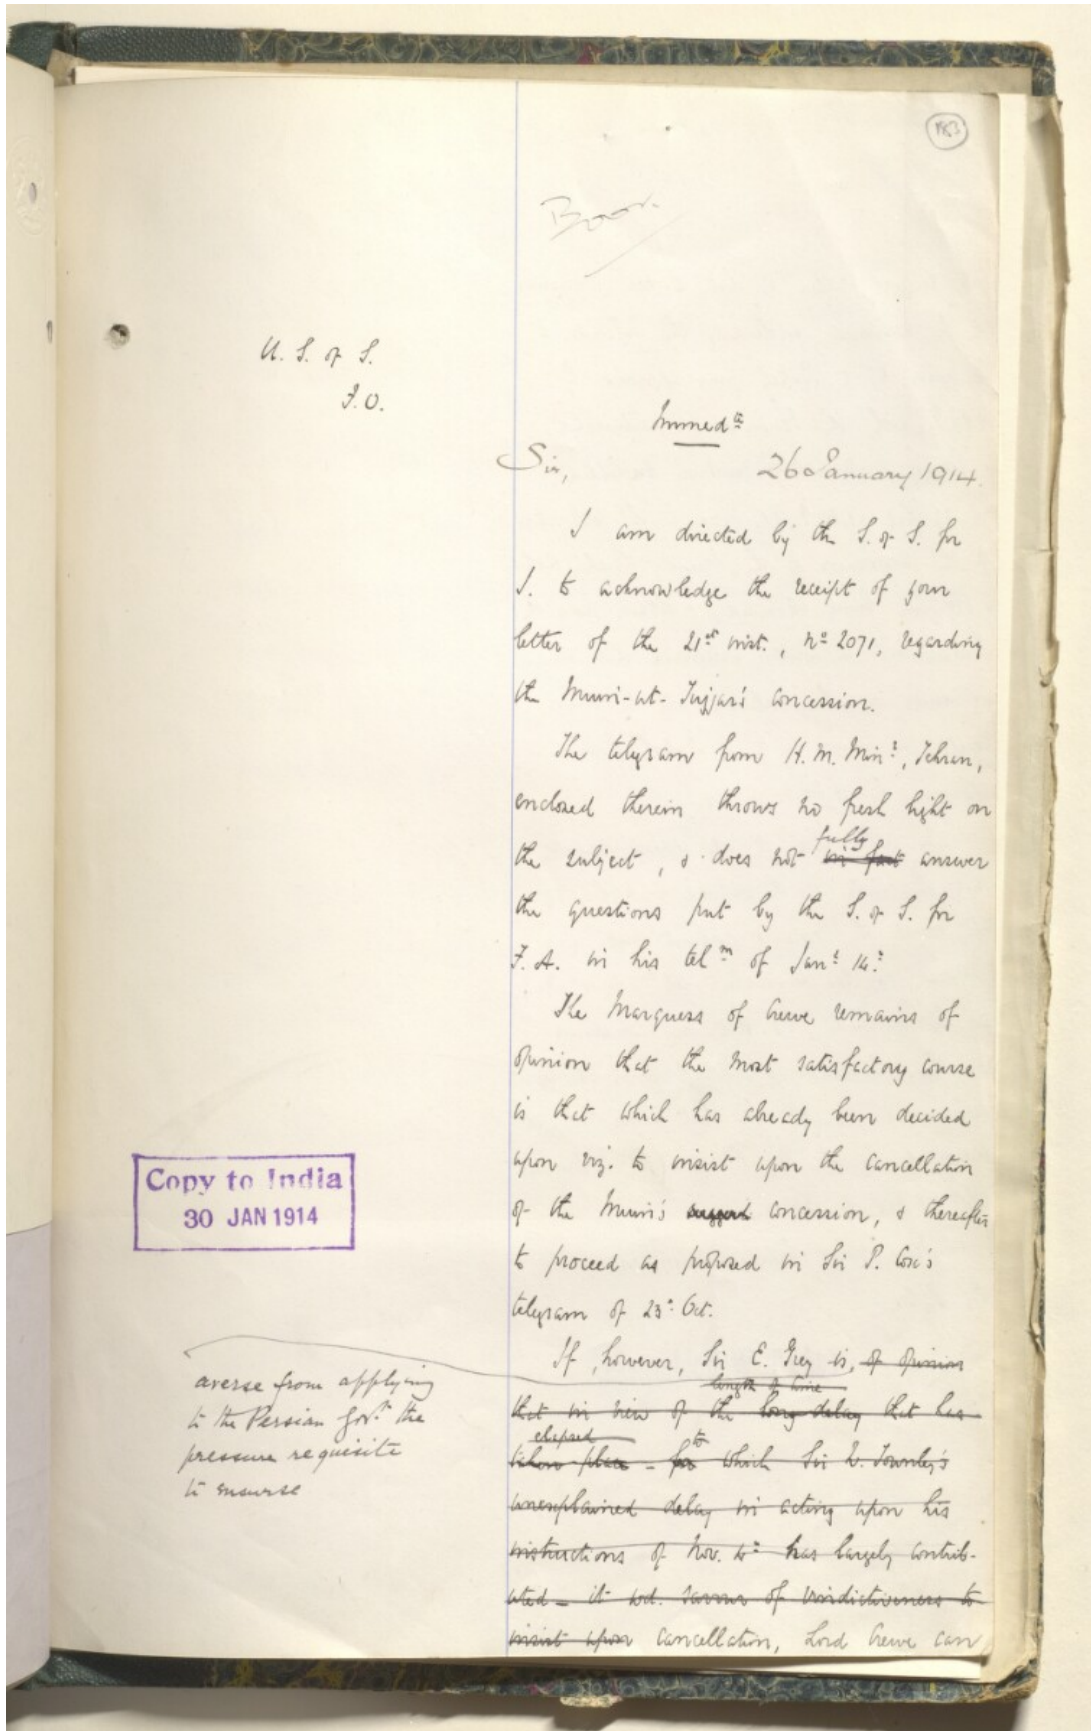 183
U. S. of S.
F.O.
Immed<sup>te</sup>
Sir,
26 January 1914.
I am directed by the S. of S. for
I. to acknowledge the receipt of your
letter of the 21st inst., No 2071, regarding
the Muin-ut-Tujjar's concession.
The telegram from H.M. Minr, Tehran,
enclosed therein throws no fresh light on
the subject, & does not in fact fully answer
the questions put by the S. of S. for
F.A. in his telm of Jany 14.
The Marquess of Crewe remains of
opinion that the most satisfactory course
is that which has already been decided
upon viz. to insist upon the cancellation
of the Muin's concession, & thereafter
to proceed as proposed in Sir P. Cox's
telegram of 23rd Oct.
If, however, Sir E. Grey is, of opinion
length of time
that in view of the long delay that has
elapsed
taken place – for to which Sir W. Townley's
unexplained delay in acting upon his
instructions of Nov. has largely contrib-
uted – it wd. savour of vindictiveness to
insist upon cancellation, Lord Crewe can
averse from applying
to the Persian Govt. the
pressure requisite
to ensure
Copy to India
30 JAN 1914